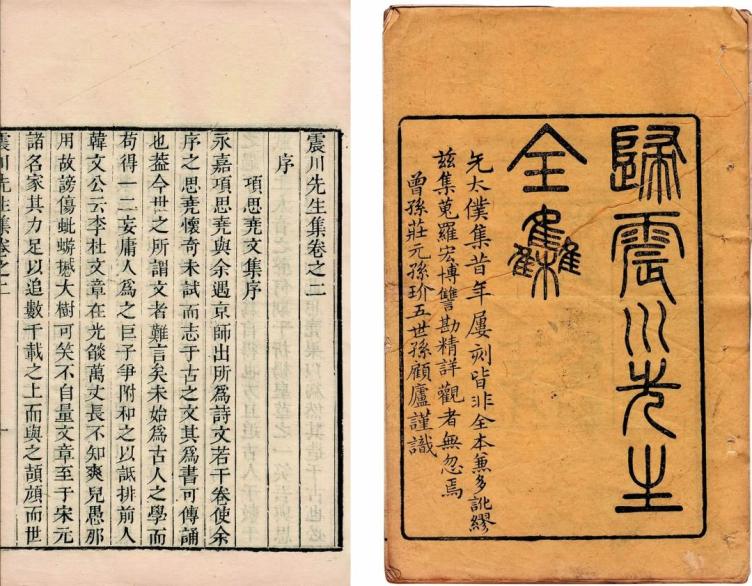 歸震川先生
全集
先太僕集昔年屢刻皆非全本兼多訛繆
茲集蒐羅宏博讐勘精詳觀者無忽焉
曾孫莊元孫玠五世孫顧廬謹識
震川先生集卷之二
序
項思堯文集序
永嘉項思堯與余遇京師出所爲詩文若干卷使余
序之思堯懷奇未試而志于古之文其爲書可傳誦
也葢今世之所謂文者難言矣未始爲古人之學而
苟得一二妄庸人爲之巨子爭附和之以詆排前人
韓文公云李杜文章在光燄萬丈長不知羣兒愚那
用故謗傷蚍蜉撼大樹可笑不自量文章至于宋元
諸名家其力足以追數千載之上而與之頡頏而世
震川先生集卷之二
一